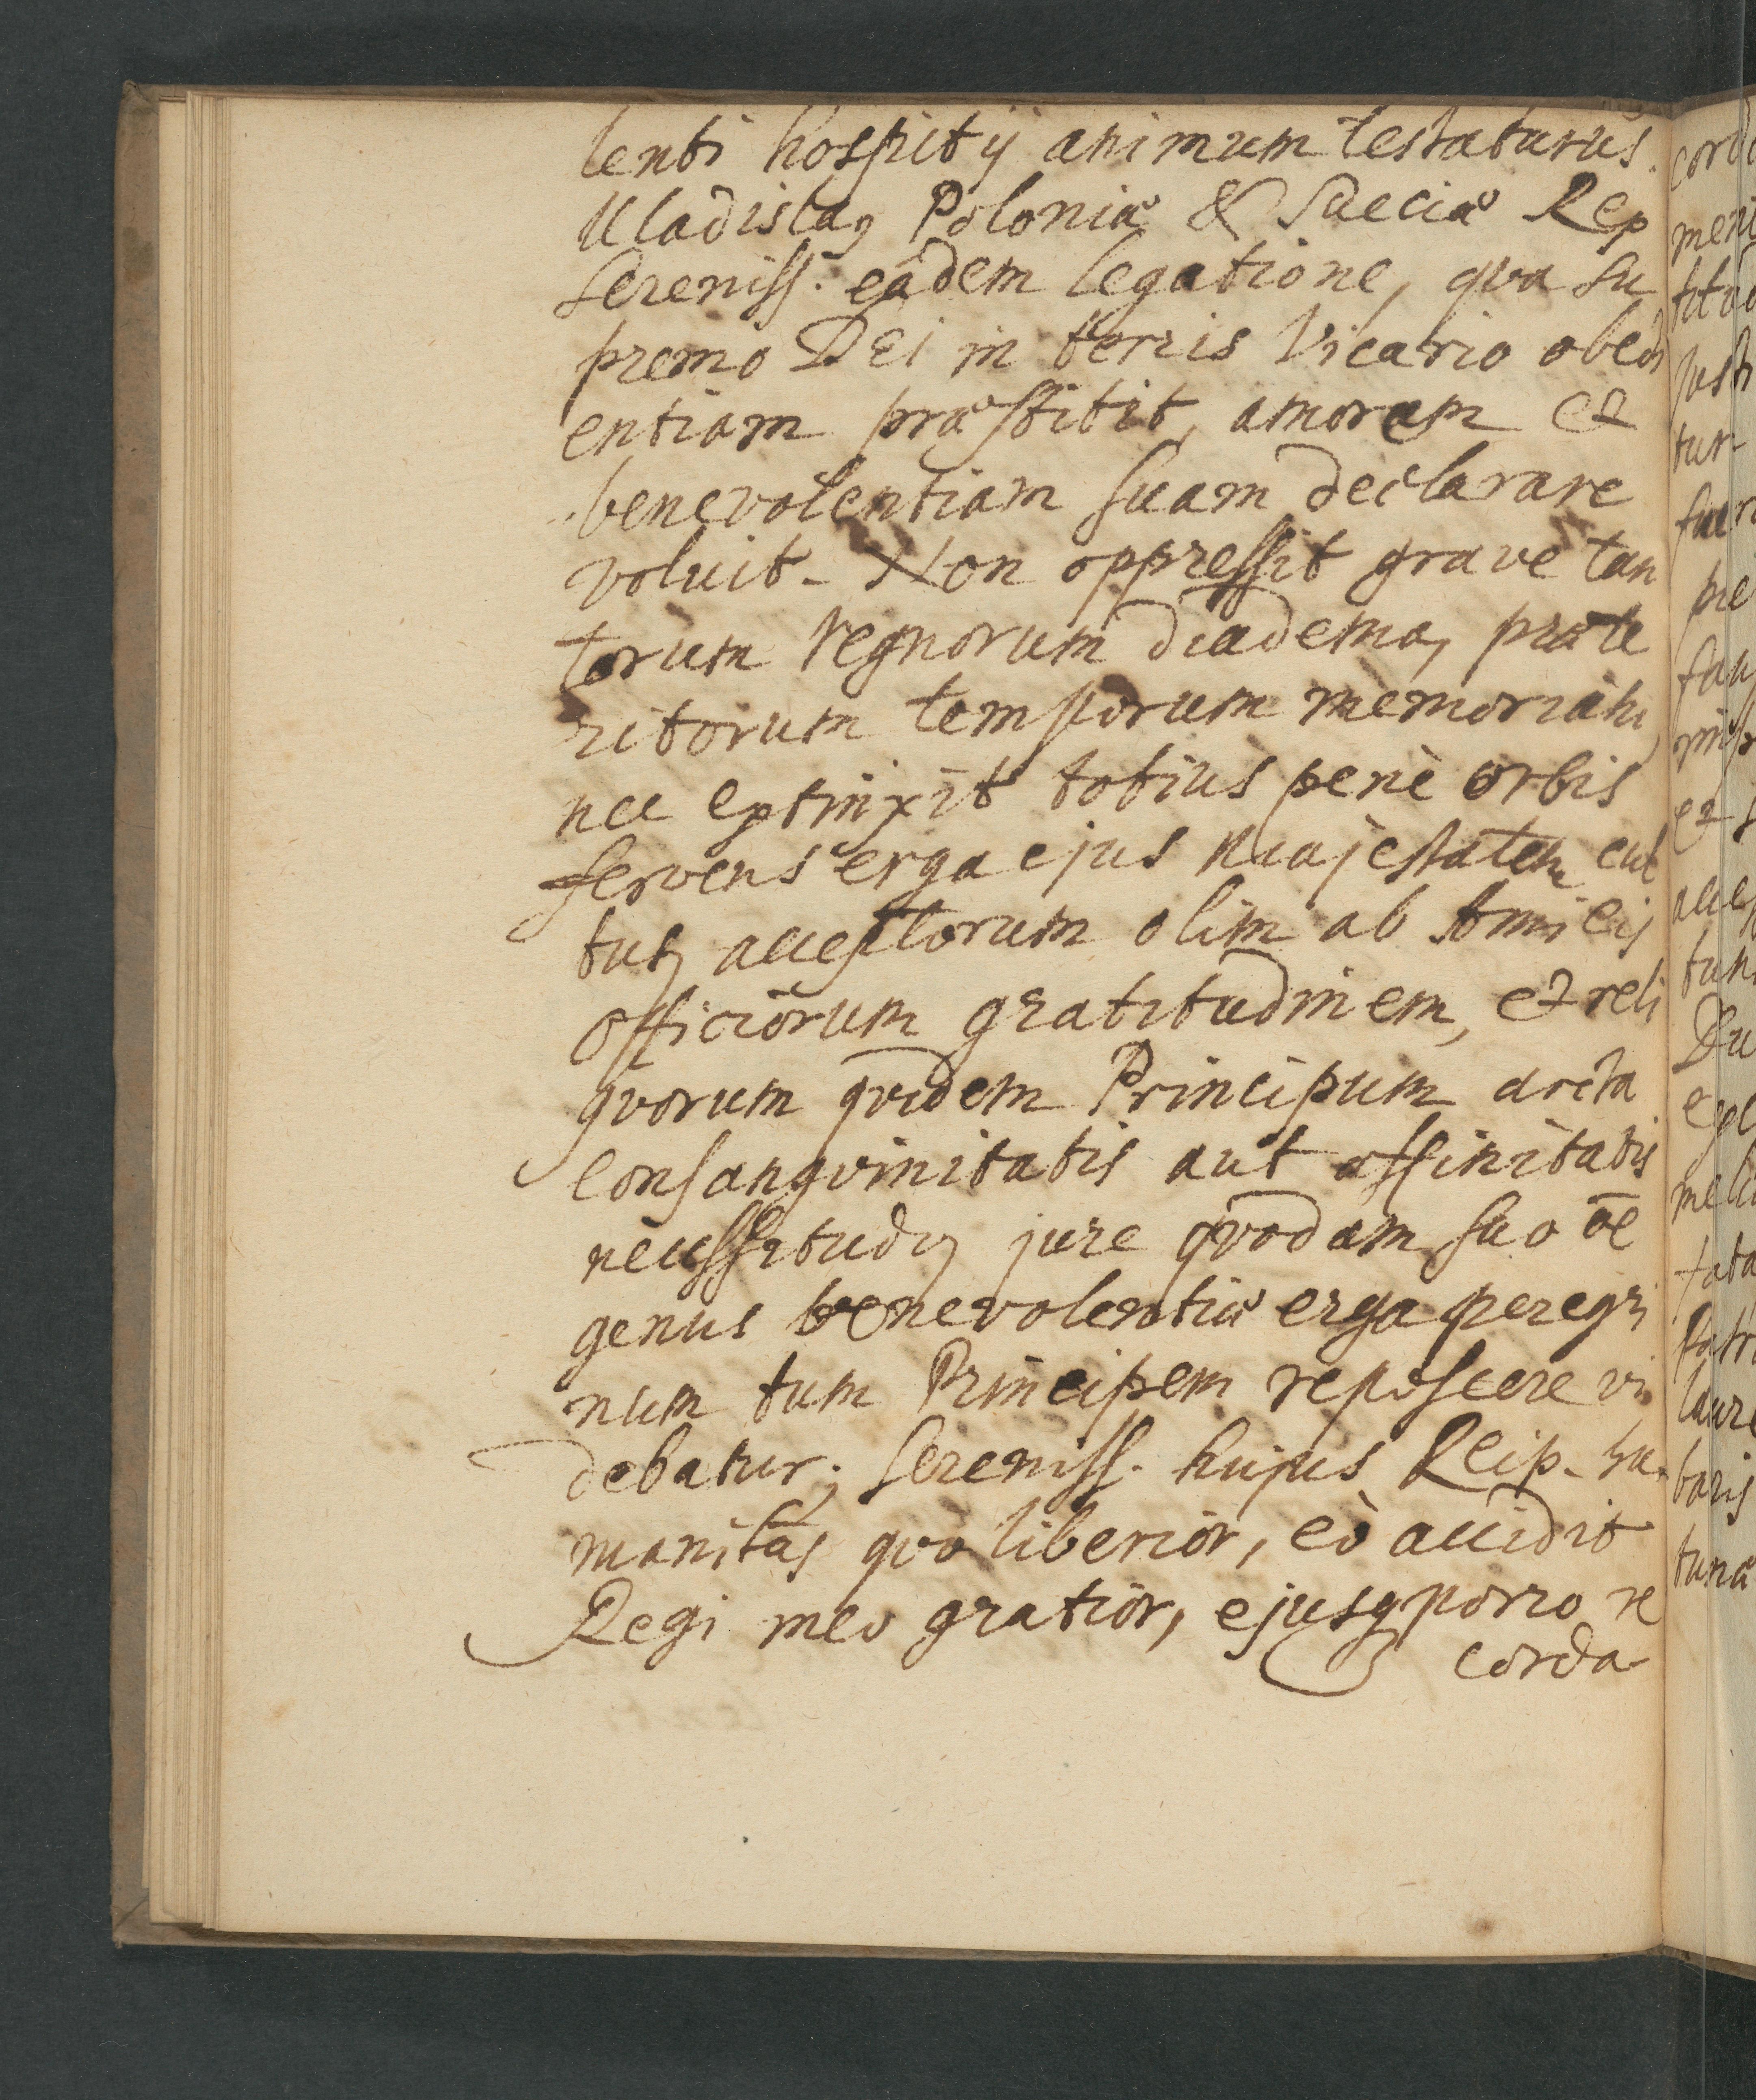 lenti hospitij animum testaturus.
Uladislaꝯ Poloniæ & Sueciæ Rex
Sereniss. eâdem legatione, qva su
premo DEi in terris Vicario obedi
entiam præstitit, amorem et
benevolentiam suam declarare
voluit. Non oppressit grave tan
torum regnorum diadema, præte
ritorum temporum memoriam,
nec extinxit totius penè orbis
fervens erga ejus Majestatem cul
tuꝯ acceptorum olim ab Amicis
officiorum gratitudinem, et reli
qvorum qvidem Principum arcta
consangvinitatis aut affinitatis
necessitudꝯ jure qvodam suo oē
genus benevolentiæ erga peregri
num tum Principem reposcere vi
debatur; Sereniss. hujus Reip. hu
manitas qvò liberior, eò accidit
Regi meo gratior, ejusq porro re
corda